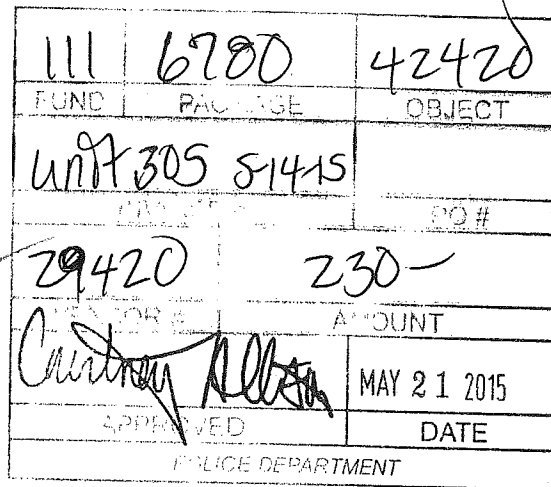 111 6780 42420
FUND PACKAGE OBJECT
unit 305 5-14-15
PO #
29420 230-
VENDOR # AMOUNT
Courtney MAY 21 2015
APPROVED DATE
POLICE DEPARTMENT